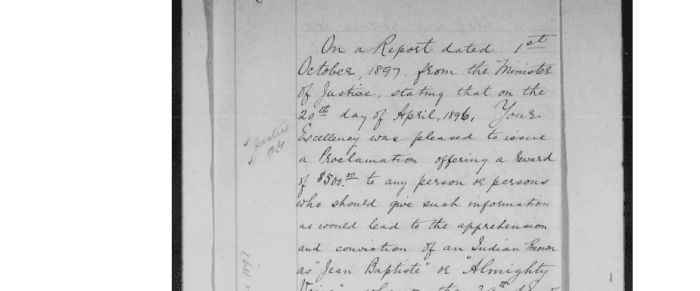 On a Report dated 1st
October, 1897 from the Minister
of Justice, stating that on the
20th day of April, 1896, Your
Excellency was pleased to issue
a Proclamation offering a reward
of $500.00 to any person or persons
who should give such information
as would lead to the apprehension
and conviction of an Indian known
as "Jean Baptiste" or "Almighty
Voice" who on the 29th day of
Justice